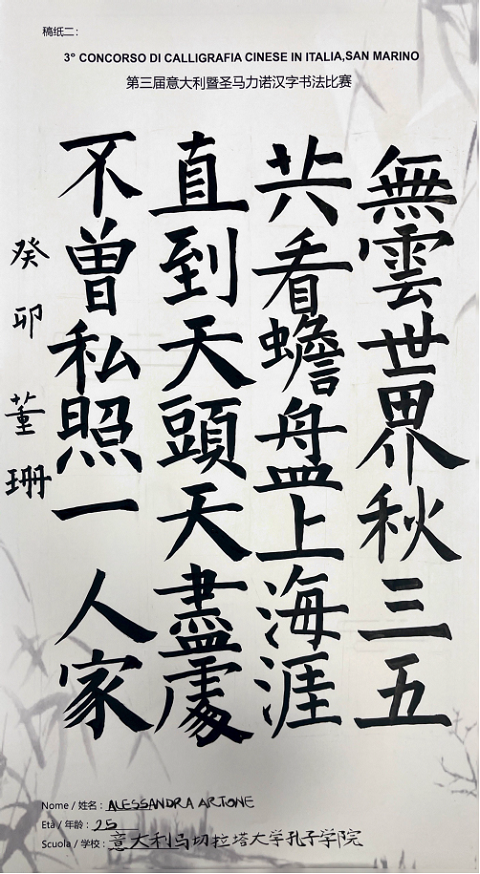 稿纸二:
3° CONCORSO DI CALLIGRAFIA CINESE IN ITALIA,SAN MARINO
第三届意大利暨圣马力诺汉字书法比赛
無雲世界秋三五
共看蟾盤上海涯
直到天頭天盡處
不曾私照一人家
癸卯 董珊
Nome / 姓名: ALESSANDRA ARTONE
Età / 年龄: 25
Scuola / 学校: 意大利马切拉塔大学孔子学院